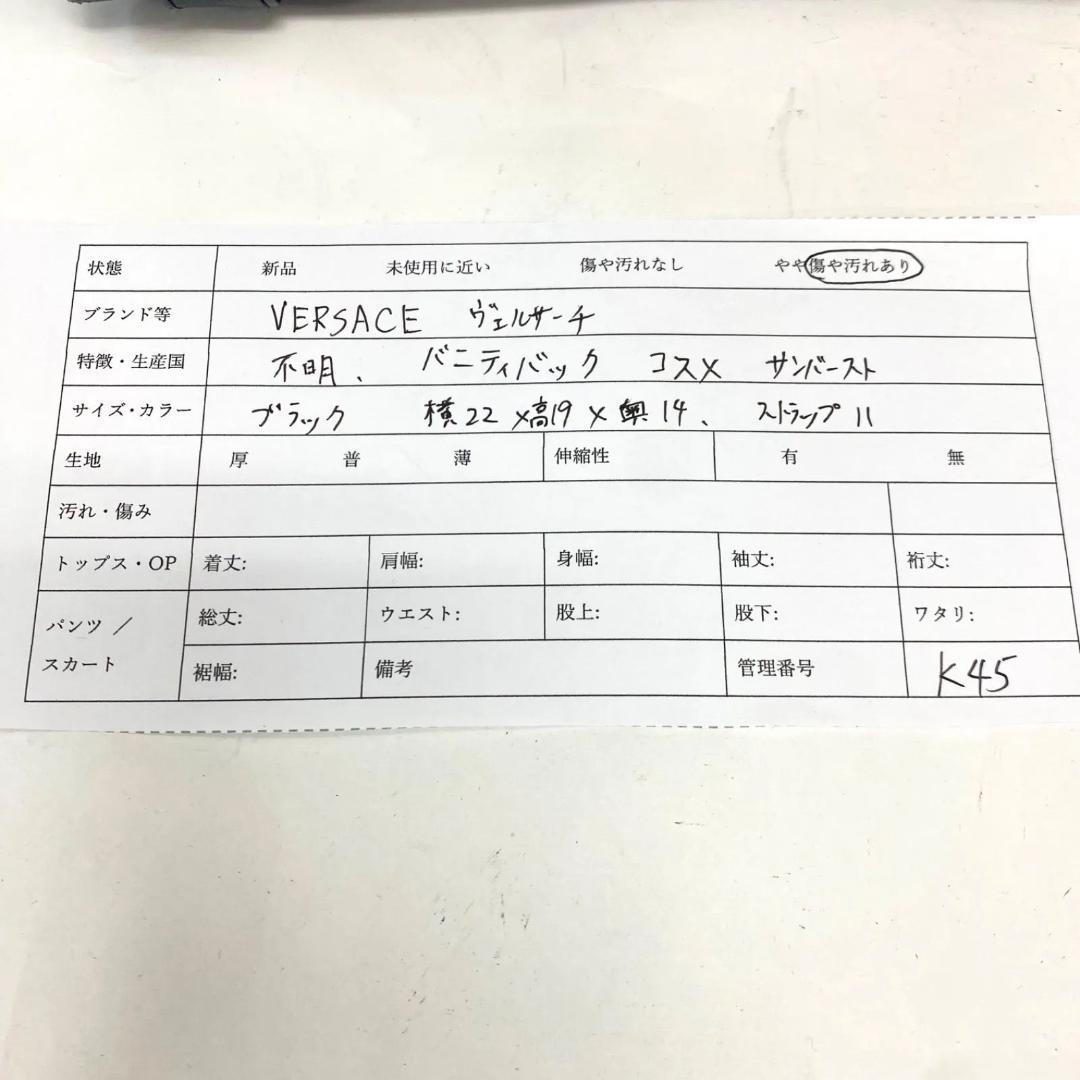 状態 新品 未使用に近い 傷や汚れなし やや傷や汚れあり
ブランド等 VERSACE ヴェルサーチ
特徴・生産国 不明、 バニティバック コスメ サンバースト
サイズ・カラー ブラック 横22×高19×奥14、 ストラップ11
生地 厚 普 薄 伸縮性 有 無
汚れ・傷み
トップス・OP 着丈: 肩幅: 身幅: 袖丈: 裄丈:
パンツ／ 総丈: ウエスト: 股上: 股下: ワタリ:
スカート 裾幅: 備考 管理番号 K45